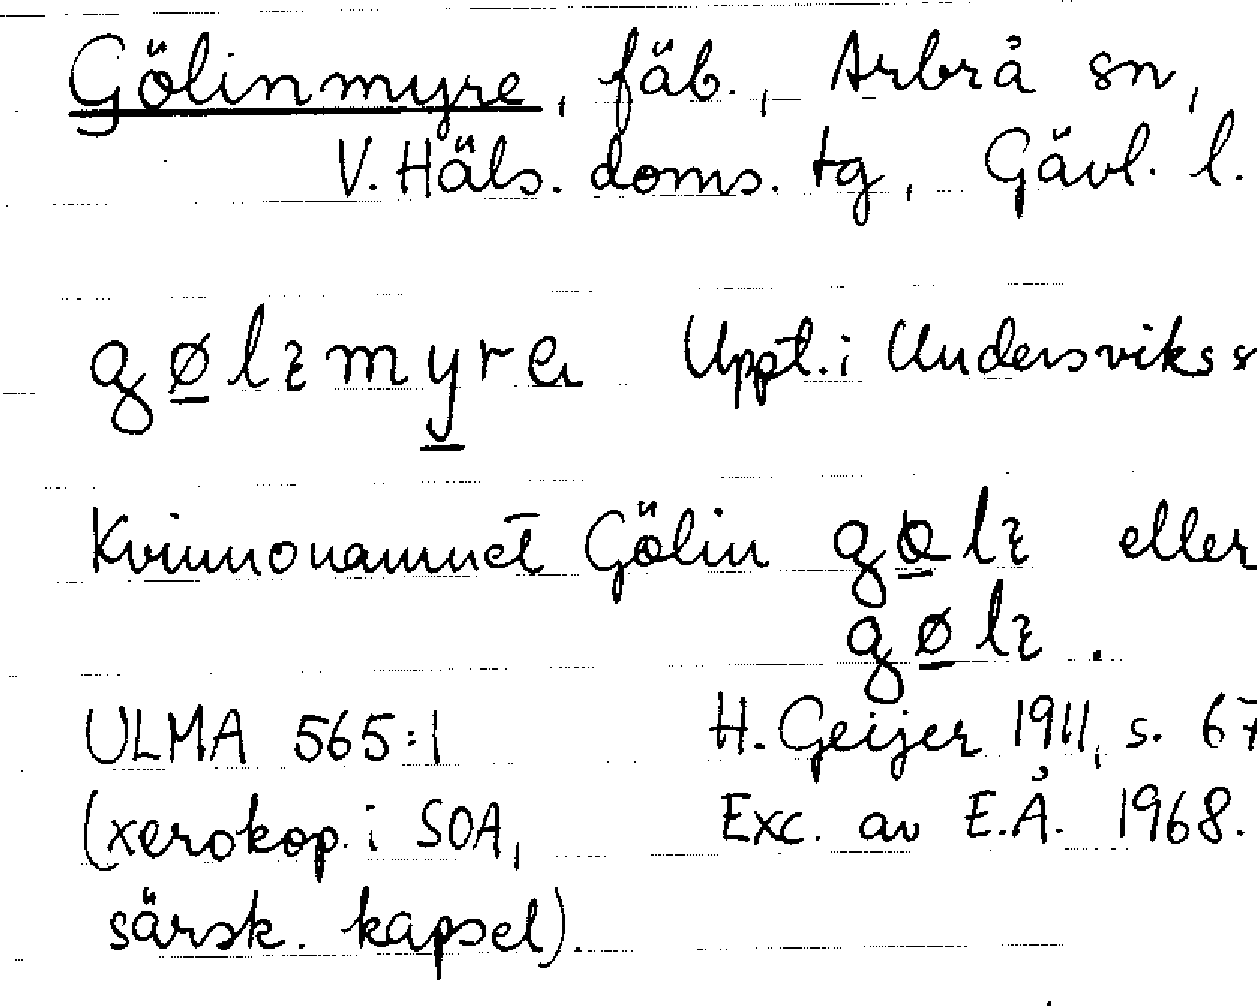 Gölinmyre, fäb., Arbrå sn,
V. Häls. doms. tg, Gävl. l.
Uppt. i Undersviks s
Kvinnonamnet Gölin eller
ULMA 565:1 H. Geijer 1911, s. 67
(xerokop. i SOA, Exc. av E.Å. 1968.
särsk. kapsel).